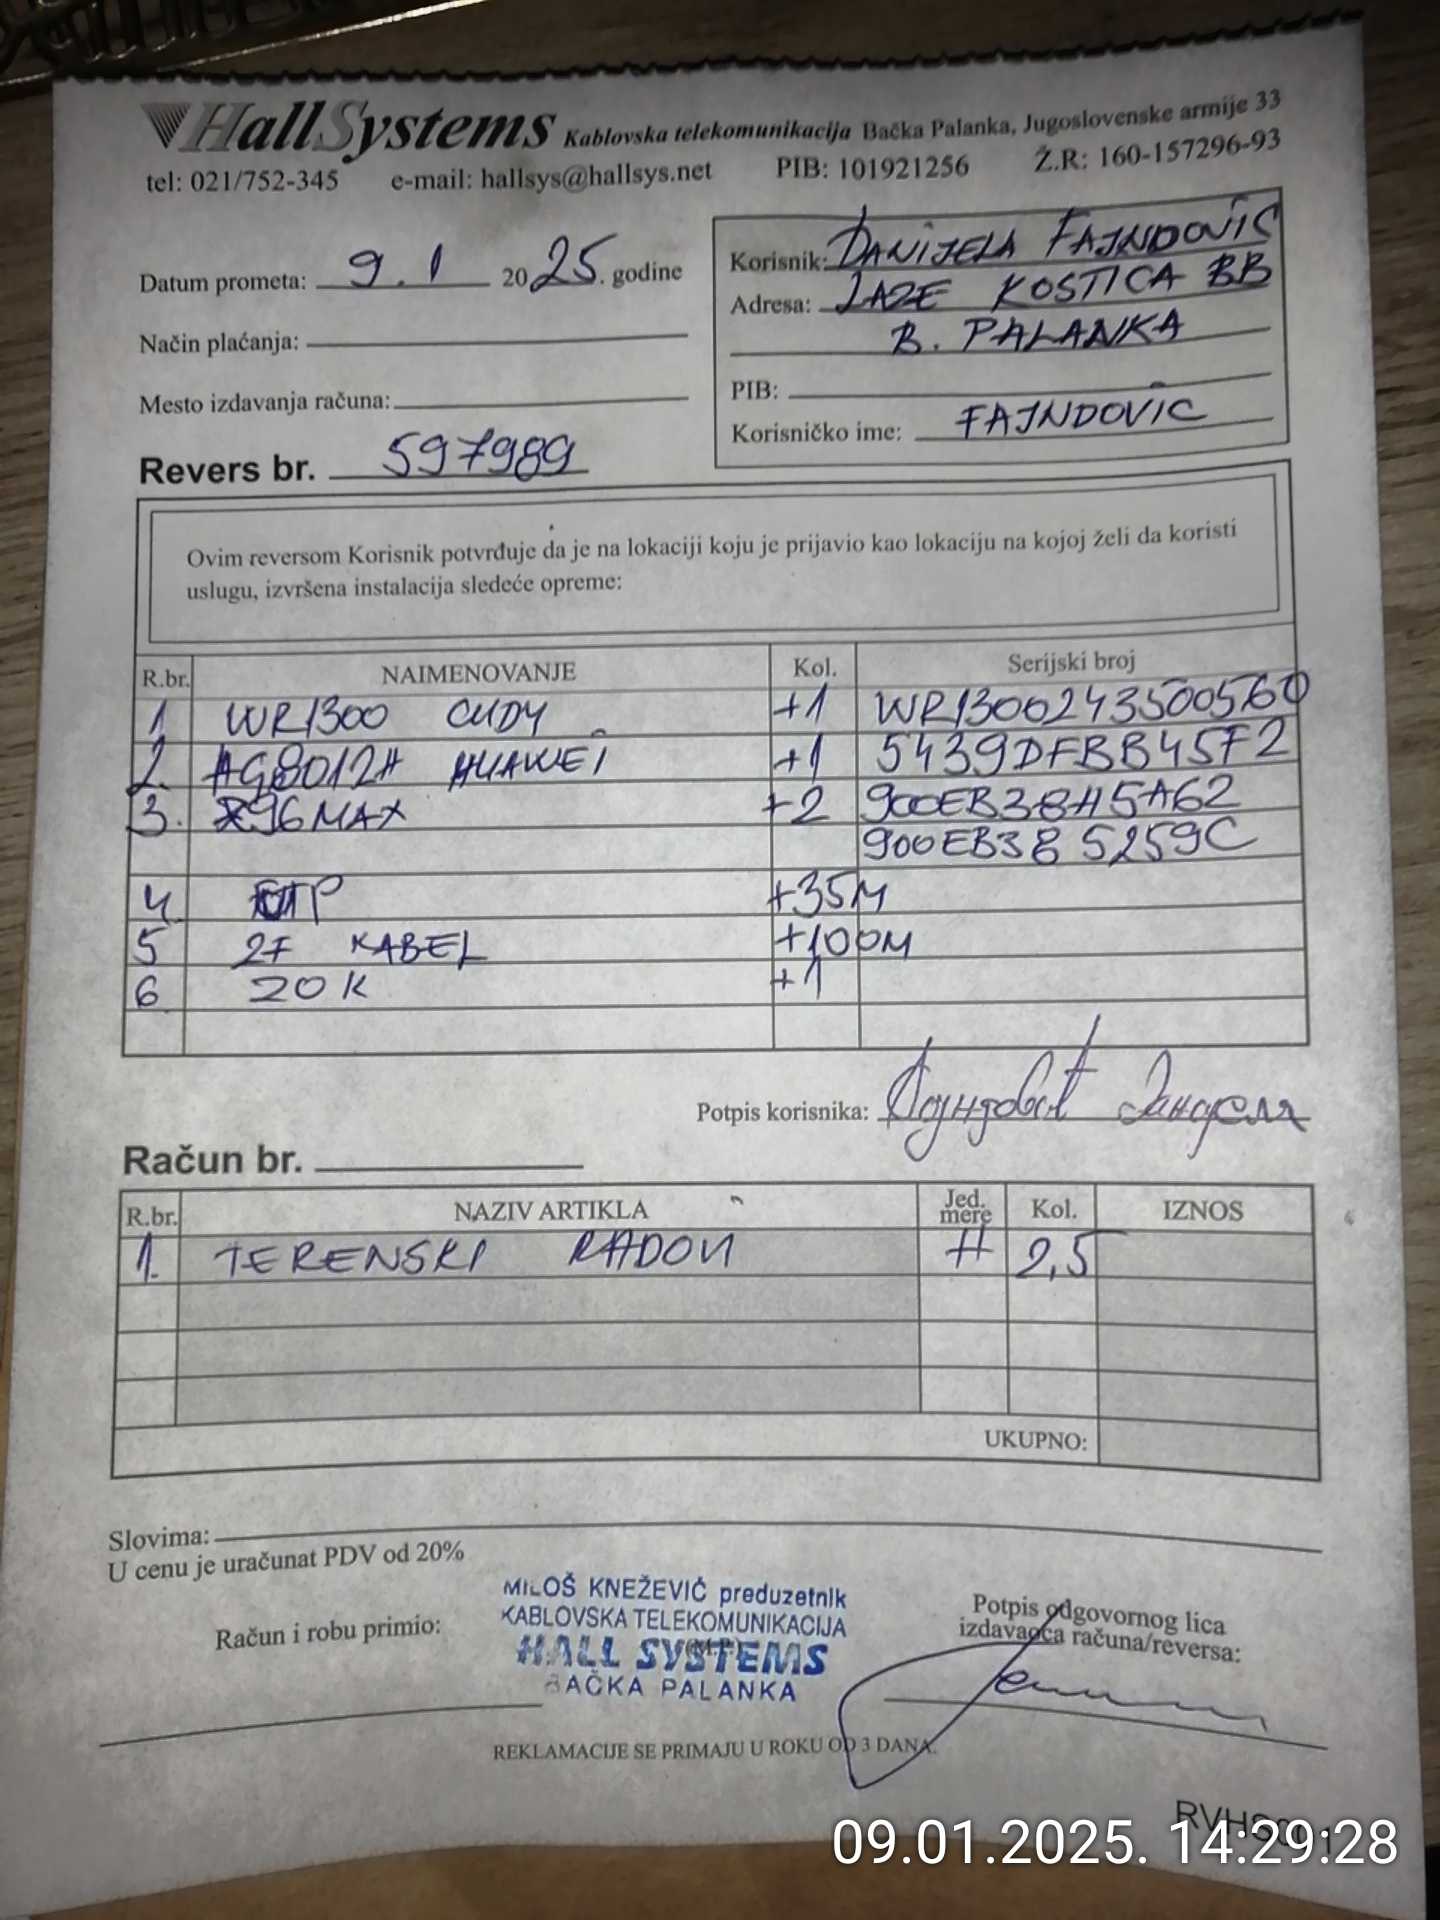 HallSystems Kablovska telekomunikacija Bačka Palanka, Jugoslovenske armije 33
tel: 021/752-345 e-mail: hallsys@hallsys.net PIB: 101921256 Ž.R: 160-157296-93
Datum prometa: 9.1 2025. godine
Način plaćanja:
Mesto izdavanja računa:
Revers br. 597989
Korisnik: DANIJELA FAJNDOVIC
Adresa: LAZE KOSTICA BB
B. PALANKA
PIB:
Korisničko ime: FAJNDOVIC
Ovim reversom Korisnik potvrđuje da je na lokaciji koju je prijavio kao lokaciju na kojoj želi da koristi
uslugu, izvršena instalacija sledeće opreme:
R.br. NAIMENOVANJE Kol. Serijski broj
1 WR1300 CUDY +1 WR1300243500560
2. HG8012H HUAWEI +1 5439DFBB45F2
3. X96MAX +2 900EB38H5A62
900EB385259C
4 +35M
5 2F KABEL +100M
6 ZOK +1
Potpis korisnika: Фајндовић Данијела
Račun br.
R.br. NAZIV ARTIKLA Jed. mere Kol. IZNOS
1. TERENSKI RADOVI H 2,5
UKUPNO:
Slovima:
U cenu je uračunat PDV od 20%
Račun i robu primio:
MILOŠ KNEŽEVIĆ preduzetnik
KABLOVSKA TELEKOMUNIKACIJA
(M.P.)
HALL SYSTEMS
BAČKA PALANKA
Potpis odgovornog lica
izdavaoca računa/reversa:
REKLAMACIJE SE PRIMAJU U ROKU OD 3 DANA.
09.01.2025. 14:29:28